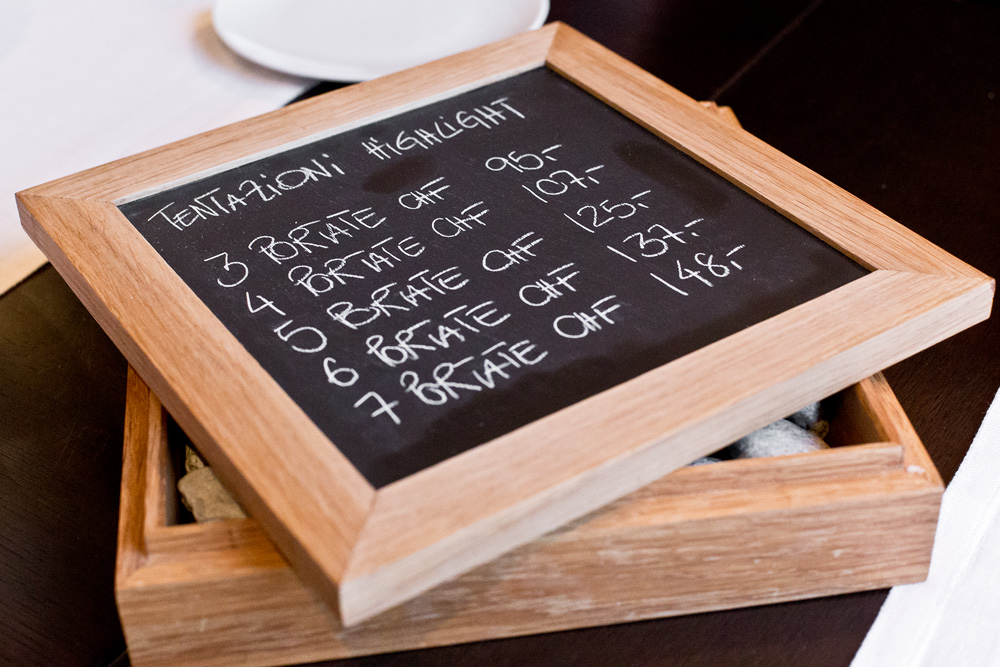 TENTAZIONI HIGHLIGHT
3 PORTATE CHF 95.-
4 PORTATE CHF 107.-
5 PORTATE CHF 125.-
6 PORTATE CHF 137.-
7 PORTATE CHF 148.-